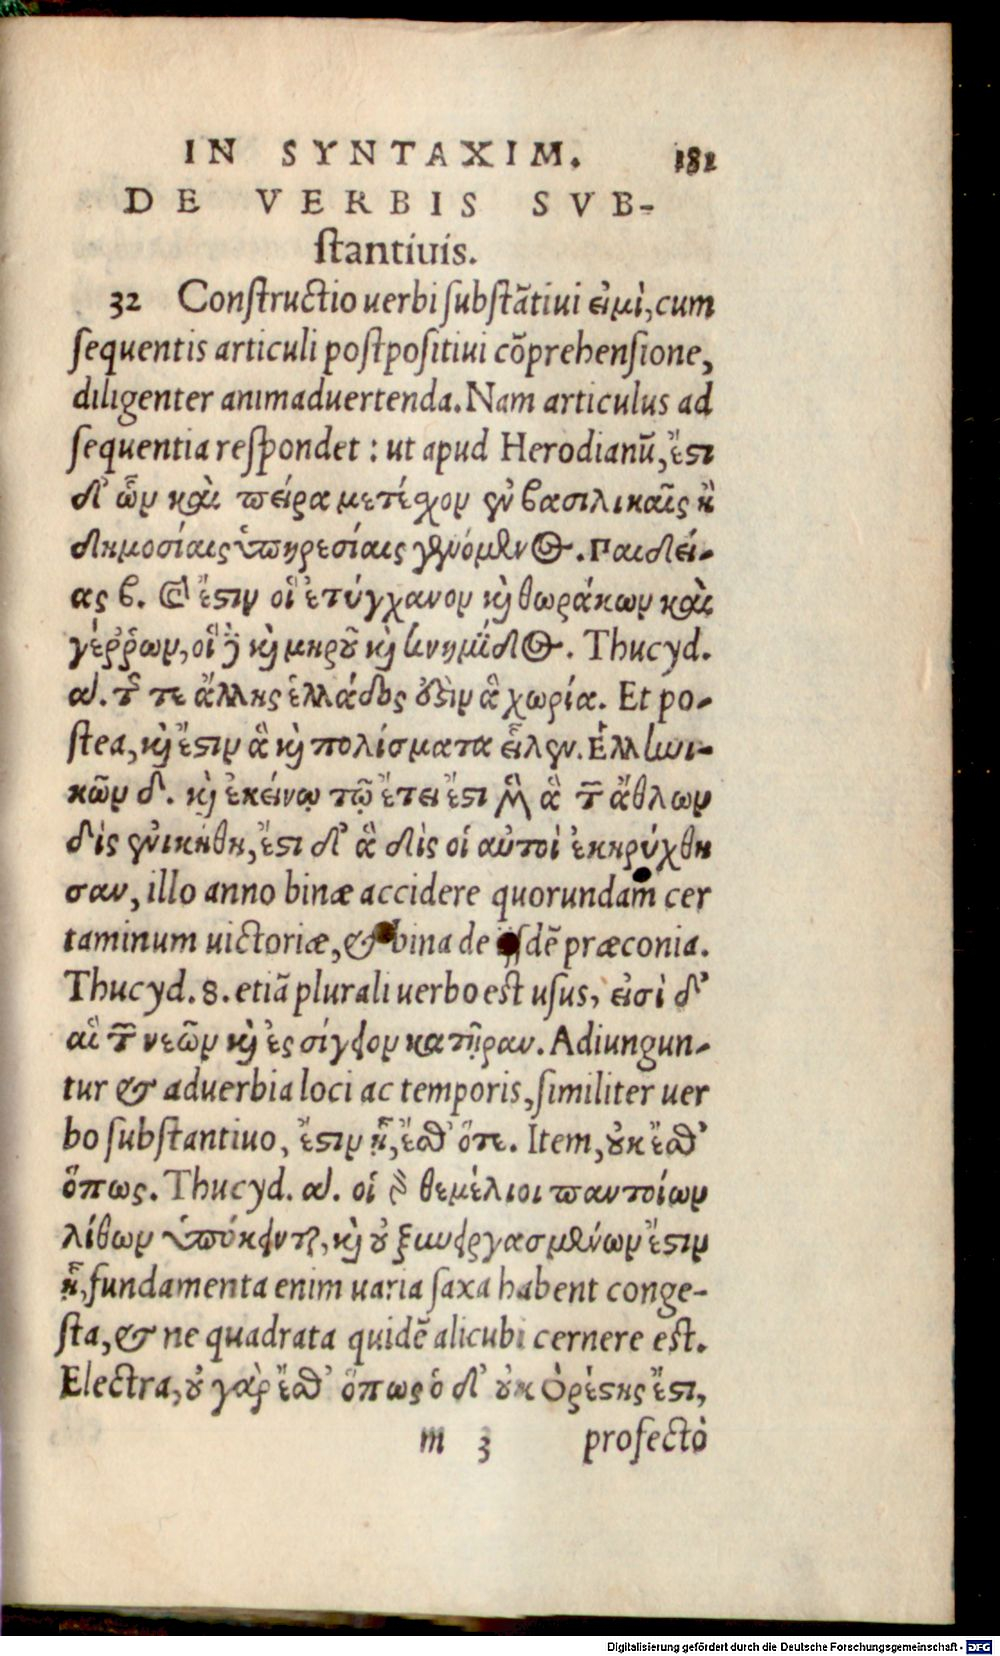 IN SYNTAXIM. 181
DE VERBIS SVB-
stantiuis.
32 Constructio uerbi substātiui εἰμὶ, cum
sequentis articuli postpositiui cōprehensione,
diligenter animaduertenda. Nam articulus ad
sequentia respondet: ut apud Herodianū, ἔστι
δ' ὧν καὶ πείρᾳ μετέσχον ἐν βασιλικαῖς ἢ
δημοσίαις ὑπηρεσίαις γενόμενος. Παιδεί-
ας β. ἔστιν οἳ ἐτύγχανον καὶ θωράκων καὶ
γέῤῥων, οἳ δὲ καὶ μηροῦ καὶ κνημῖδος. Thucyd.
α. τῆς τε ἄλλης ἑλλάδος ἔστιν ἃ χωρία. Et po-
stea, καὶ ἔστιν ἃ καὶ πολίσματα εἷλεν. Ἑλλίωι-
κῶν δ. καὶ ἐκείνῳ τῷ ἔτει ἔστι μὲν ἃ τῶν ἄθλων
δὶς ἐνικήθη, ἔστι δ' ἃ δὶς οἱ αὐτοὶ ἐκηρύχθη
σαν, illo anno binæ accidere quorundam cer
taminum uictoriæ, & bina de iisdē præconia.
Thucyd. 8. etiā plurali uerbo est usus, εἰσὶ δ'
αἳ τῶν νεῶν καὶ ἐς σίγειον κατῆραν. Adiungun-
tur & aduerbia loci ac temporis, similiter uer
bo substantiuo, ἔστιν ᾗ, ἔσθ' ὅτε. Item, οὐκ ἔσθ'
ὅπως. Thucyd. α. οἱ γὰρ θεμέλιοι παντοίων
λίθων ὑπόκεινται, καὶ οὐ ξυνειργασμένων ἔστιν
ᾗ, fundamenta enim uaria saxa habent conge-
sta, & ne quadrata quidē alicubi cernere est.
Electra, οὐ γὰρ ἔσθ' ὅπως ὁ δ' οὐκ Ὀρέστης ἔστι,
m 3 profectò
Digitalisierung gefördert durch die Deutsche Forschungsgemeinschaft - DFG